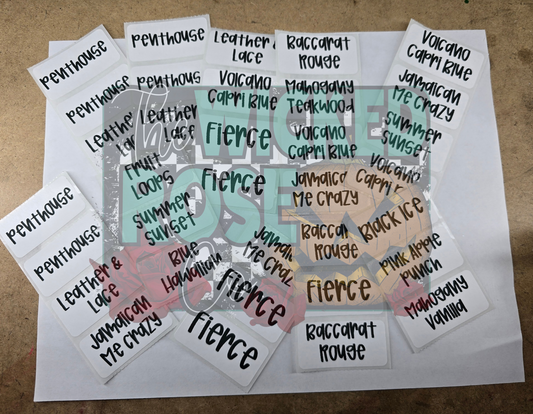 Penthouse
Penthouse
Leather &
Lace
Baccarat
Rouge
Volcano
Capri Blue
Penthouse
Penthouse
Volcano
Capri Blue
Mahogany
Teakwood
Jamaican
Me Crazy
Leather
Leather
Lace
Fierce
Volcano
Capri Blue
Summer
Sunset
Fruit
Loops
Fierce
Jamaican
Me Crazy
Volcano
Capri
Penthouse
Summer
Sunset
Baccarat
Rouge
Black Ice
Penthouse
Blue
Hawaiian
Jamaican
Me Crazy
Pink Apple
Punch
Leather &
Lace
Fierce
Fierce
Mahogany
Vanilla
Jamaican
Me Crazy
Fierce
Baccarat
Rouge
The
Wicked
Rose
Co